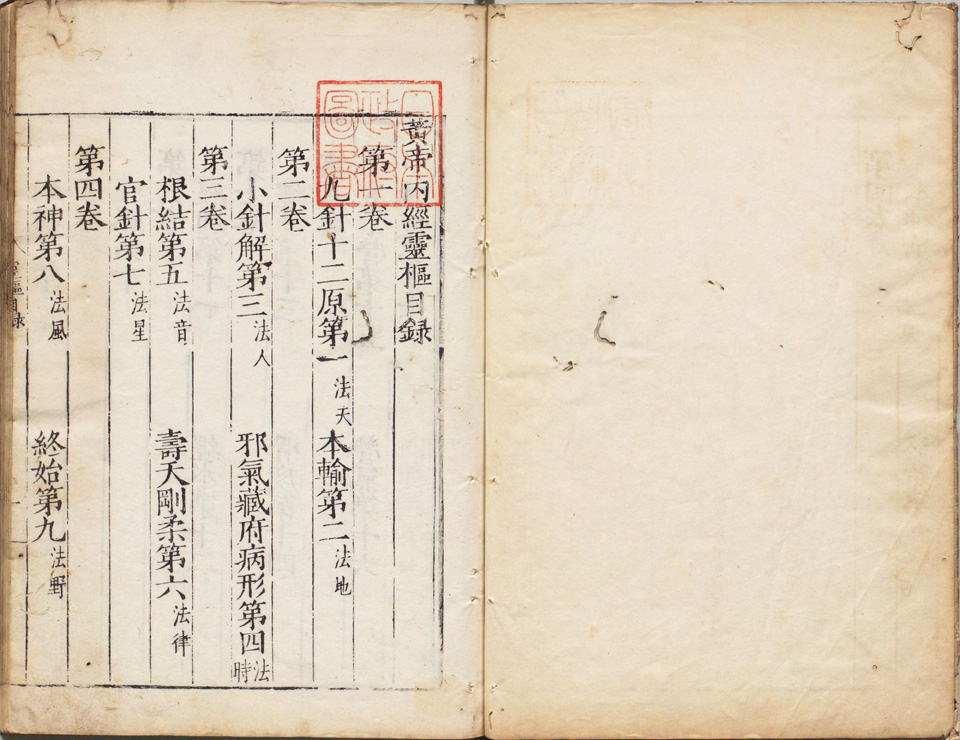 黃帝内經靈樞目録
第一卷
九針十二原第一 法天 本輸第二 法地
第二卷
小針解第三 法人 邪氣藏府病形第四 法時
第三卷
根結第五 法音 壽夭剛柔第六 法律
官針第七 法星
第四卷
本神第八 法風 終始第九 法野
靈樞目録 一
圖書